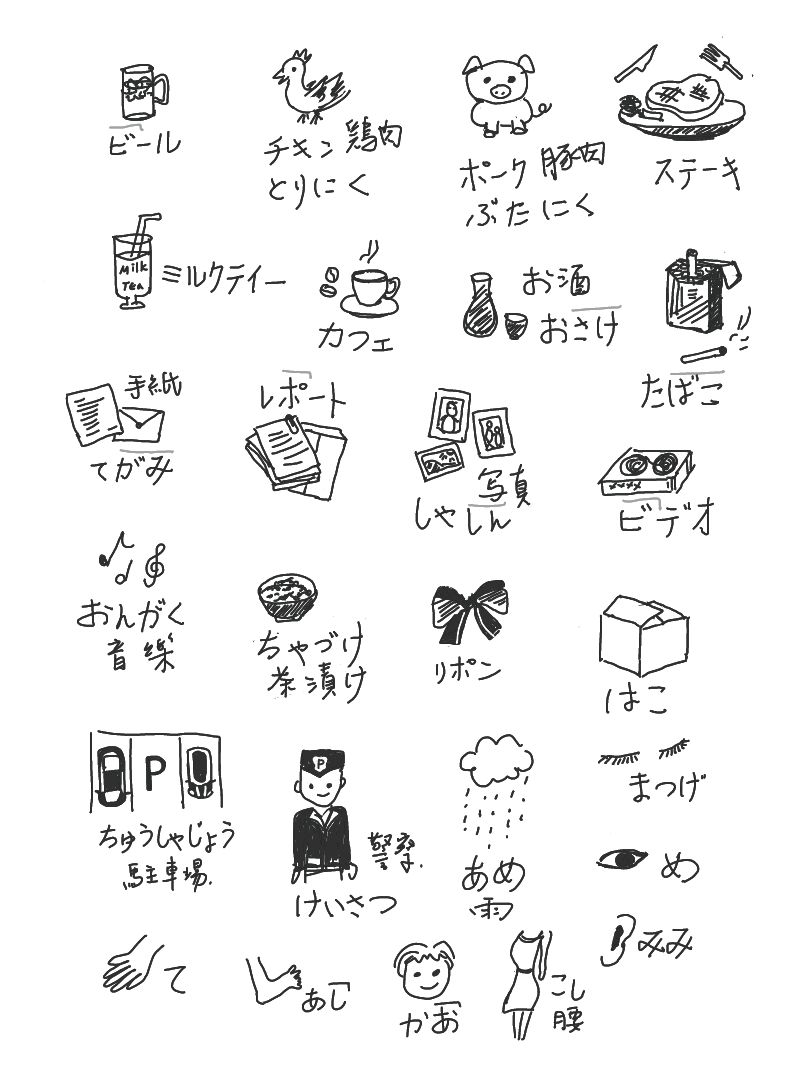 ビール
チキン 鶏肉
とりにく
ポーク 豚肉
ぶたにく
ステーキ
Milk
Tea
ミルクティー
カフェ
お酒
おさけ
たばこ
手紙
てがみ
レポート
写真
しゃしん
ビデオ
おんがく
音樂
ちゃづけ
茶漬け
リポン
はこ
P
ちゅうしゃじょう
駐車場.
P
警察.
けいさつ
あめ
雨
まつげ
め
みみ
て
あし
かお
こし
腰